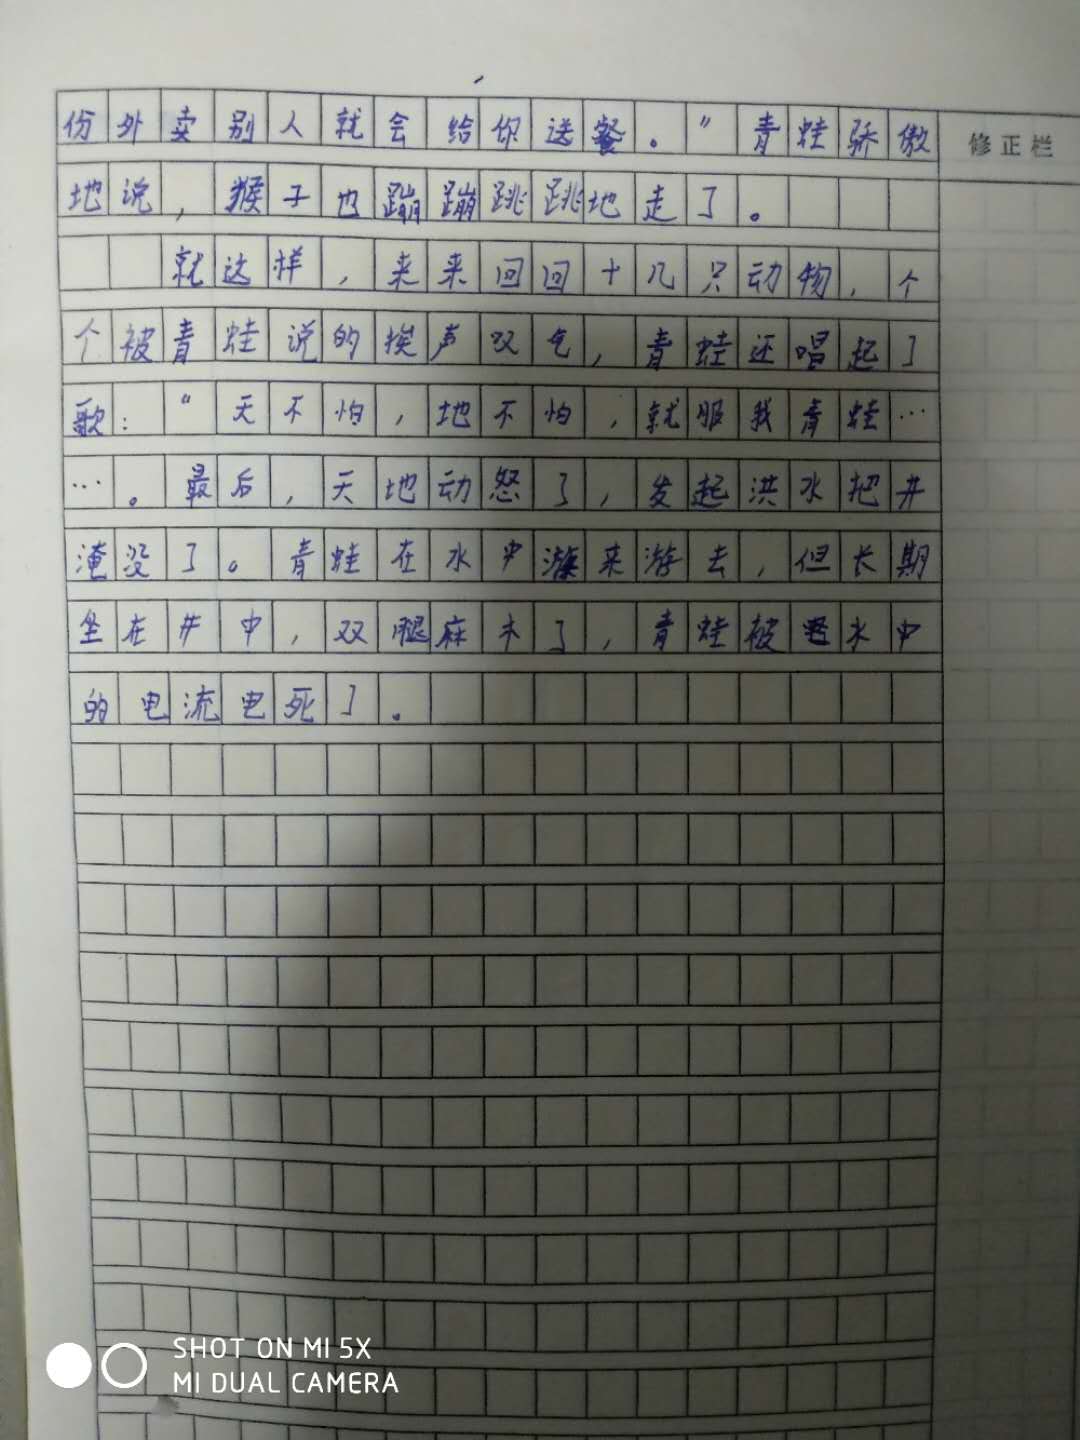 份外卖别人就会给你送餐。”青蛙骄傲
修正栏
地说，猴子也蹦蹦跳跳地走了。
就这样，来来回回十几只动物，个
个被青蛙说的挨声双气，青蛙还唱起了
歌：“天不怕，地不怕，就服我青蛙…
…。最后，天地动怒了，发起洪水把井
淹没了。青蛙在水中游来游去，但长期
坐在井中，双腿麻木了，青蛙被水中
的电流电死了。
SHOT ON MI 5X
MI DUAL CAMERA